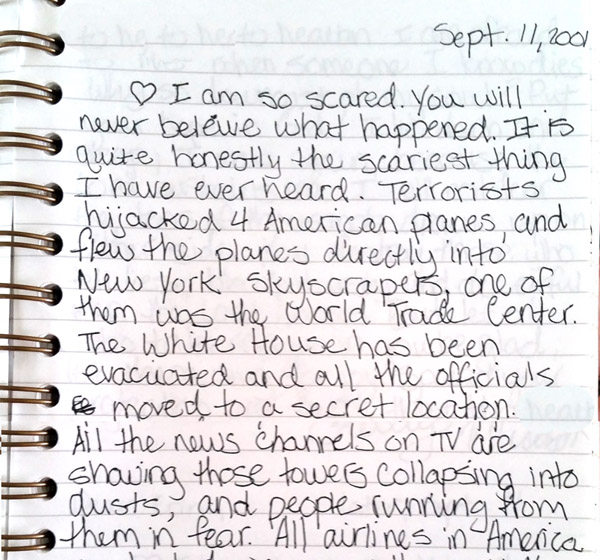 Sept. 11, 2001
♡ I am so scared. You will
never beleive what happened. It is
quite honestly the scariest thing
I have ever heard. Terrorists
hijacked 4 American planes, and
flew the planes directly into
New York skyscrapers, one of
them was the World Trade Center.
The White House has been
evacuated and all the officials
moved to a secret location.
All the news channels on TV are
showing those towers collapsing into
dusts, and people running from
them in fear. All airlines in America